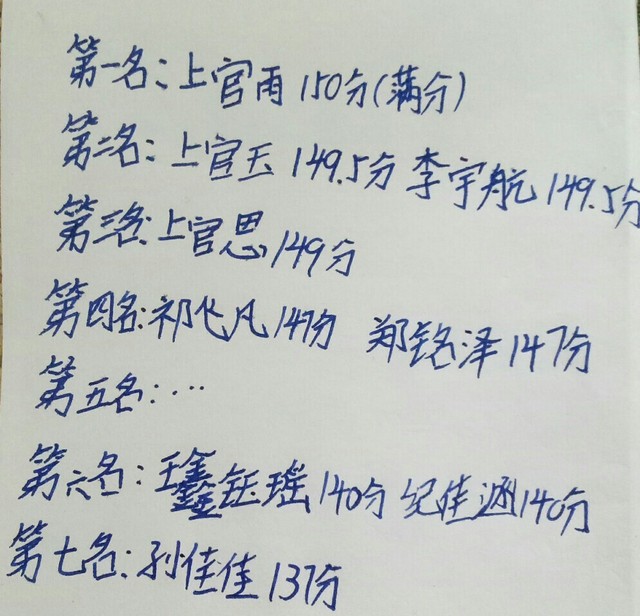 第一名：上官雨 150分(满分)
第二名：上官玉 149.5分 李宇航 149.5分
第三名：上官思 149分
第四名：祁凡 147分 郑铭泽 147分
第五名：…
第六名：王鑫钰瑶 140分 纪佳涵 140分
第七名：孙佳佳 137分